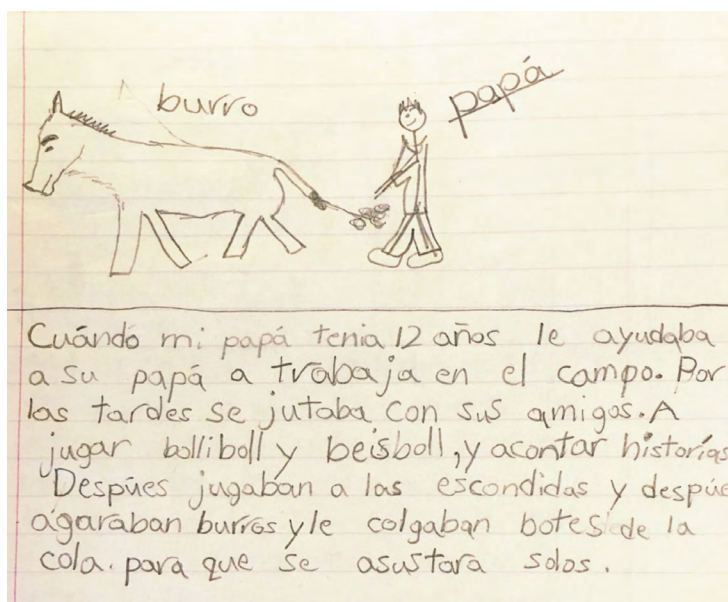 burro
papá
Cuándo mi papá tenia 12 años le ayudaba
a su papá a trabaja en el campo. Por
las tardes se jutaba con sus amigos. A
jugar bolliboll y beisboll, y acontar historias
Despúes jugaban a las escondidas y despúe
agaraban burros y le colgaban botes de la
cola. para que se asustara solos.